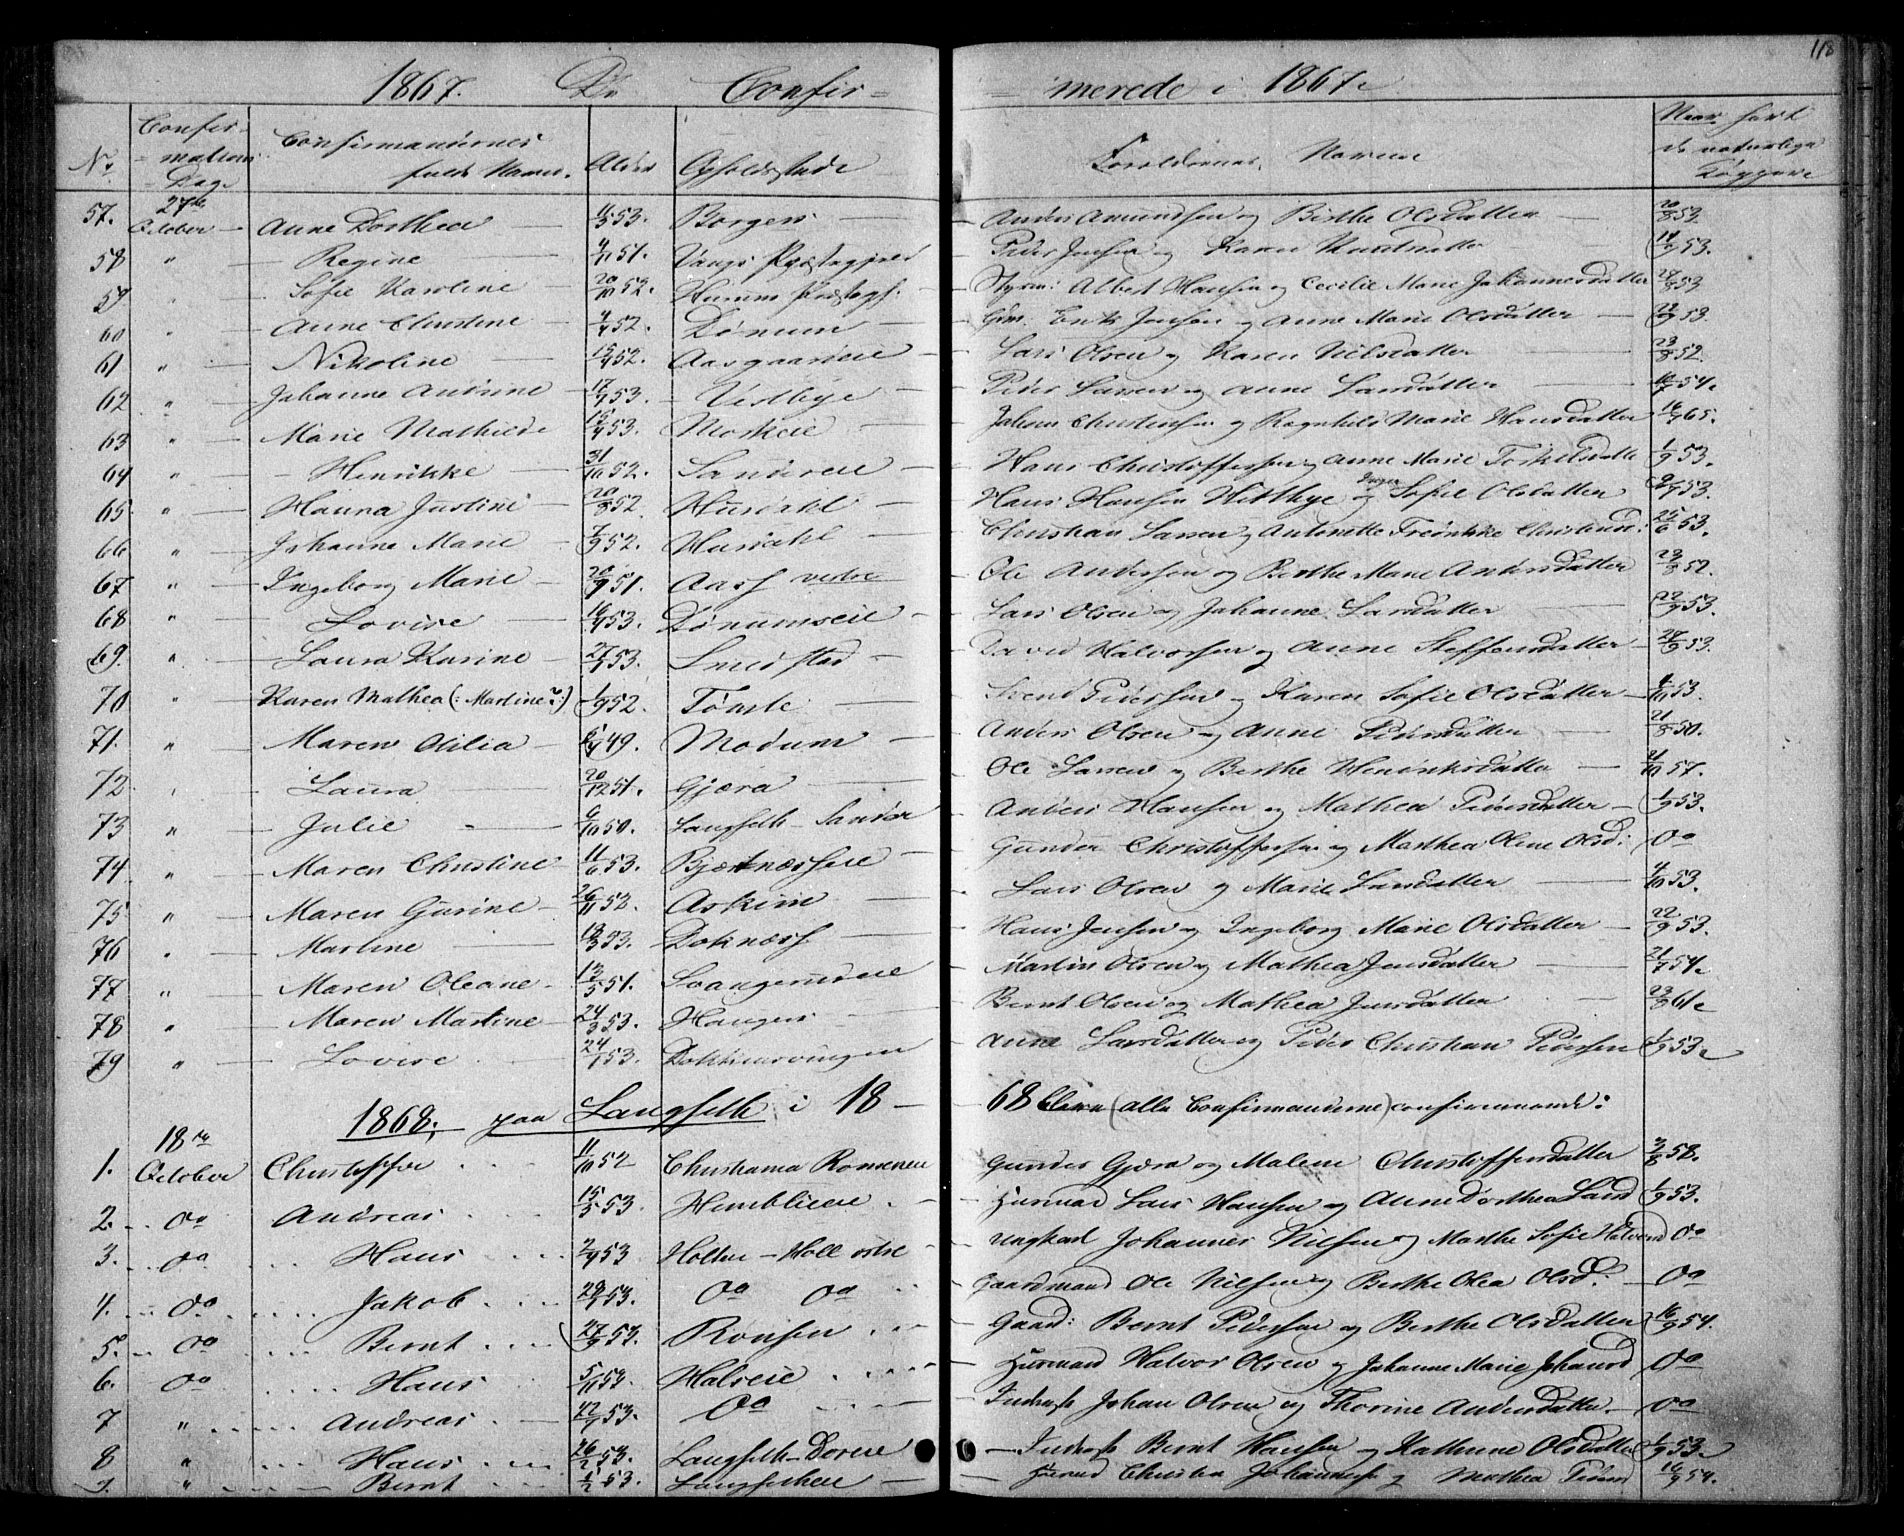 118
1867. De Confir= =merede i 1867.
No. Confir=mations Dage Confirmandernes fulde Navne. Alder Opholdsstede Forældrenes Navne Naar havt de naturlige Kopper
57. 27de October Anne Dorthea 53. Borgen Anders Amundsen og Birthe Olsdatter 20/8 53
58 " Regine 51. Vangs Præstegjeld Peder Jensen og Karen Knudsdatter 53.
59 " Sofie Karoline 20/10 52. Hurums Præstegj: Styrm: Albert Hansen og Cecilie Marie Johannesdatter 53
60 " Anne Christine 52. Dønum Gm. Jensen og Anne Marie Olsdatter 22/9 53.
61 " Nikoline 52. Aasgaardeie Lars Olsen og Karen Nilsdatter 23/8 52.
62 " Johanne Andrine 53. Vestbye Peder Larsen og Anne Larsdatter 54.
63 " Marie Mathilde 53. Moseie Johan Christensen og Ragnhild Marie Hansdatter 65.
64 " Henrikke 31/10 52. Sandereie Hans Christoffersen og Anne Marie Torkelsdatte 1/9 53.
65 " Hanna Justine 20/8 52. Husdahl Hans Hansen Witthye og Inger Sofie Olsdatter 53.
66 " Johanne Marie 7/9 52. Husdahl Christian Larsen og Antonette Fredrikke Christiansd: 25/6 53.
67 " Ingeborg Marie 51. Aass vestre Ole Andersen og Berthe Marie Andersdatter 23/8 52.
68 " Lovise 53. Dønumseie Lars Olsen og Johanne Larsdatter 22/9 53.
69. " Laura Karine 53. Smedstad David Halvorsen og Anne Steffensdatter 53.
70 " Karen Mathea (: Martine?:) 1/9 52. Tømte Svend Pedersen og Karen Sofie Olsdatter 53.
71. " Maren Otilia 49. Modum Anders Olsen og Anne Pedersdatter 21/8 50.
72 " Laura 20/12 51. Gjæra Ole Larsen og Berthe Henriksdatter 57.
73 " Julie 6/10 50. Langseth Sandер Anders Hansen og Mathea Pedersdatter 1/9 53.
74 " Maren Christine 11/6 53. Bjærtnæsseie Gunder Christoffersen og Marthea Oline Olsd: Do
75 " Maren Gurine 26/11 52. Askim Lars Olsen og Marie Larsdatter 4/10 53.
76 " Martine 53. Doknæss Hans Jensen og Ingeborg Marie Olsdatter 22/9 53.
77 " Maren Oleane 13/5 51. Svangerudeie Martin Olsen og Mathea Jensdatter 54.
78 " Maren Martine 24/3 53. Haugen Bernt Olsen og Mathea Jensdatter 61.
79 " Lovise 24/1 53. Dokkensvingen Anne Larsdatter og Peder Christian Pedersen 1/9 53.
1868, paa Langseth i 18 — 68 bleve (alle Confirmanderne) confirmerede:
1. 18de October Christoffer 11/10 52 Christiania Romerie Gunder Gjæra og Malene Christoffersdatter 3/8 58.
2. Do Andreas 15/5 53. Hemblieie Husmad Lars Hansen og Anne Dorthea Larsd 1/9 53.
3. Do Hans 53 Holten - Holl østre Ungkarl Johannes Nilsen og Marthe Sofie Halvorsd Do
4. Do Jakob 53. Do Do Gaardmand Ole Nilsen og Berthe Olea Olsd: Do
5. Do Bernt 27/9 53. Rønsen Gaard: Bernt Pedersen og Berthe Olsdatter 16/9 54.
6. Do Hans 5/11 53. Halseie Husmand Halvor Olsen og Johanne Marie Johansd Do
7 " Andreas 53. Do Inderst Johan Olsen og Thorine Andersdatter Do
8 " Hans 26/2 53. Langseth-Doreie Inderst Bernt Hansen og Kathrine Olsdatter 1/9 53.
9. " Bernt 53. Langsetheie Husmd Christen Johanness og Mathea Pedersd 16/9 54.